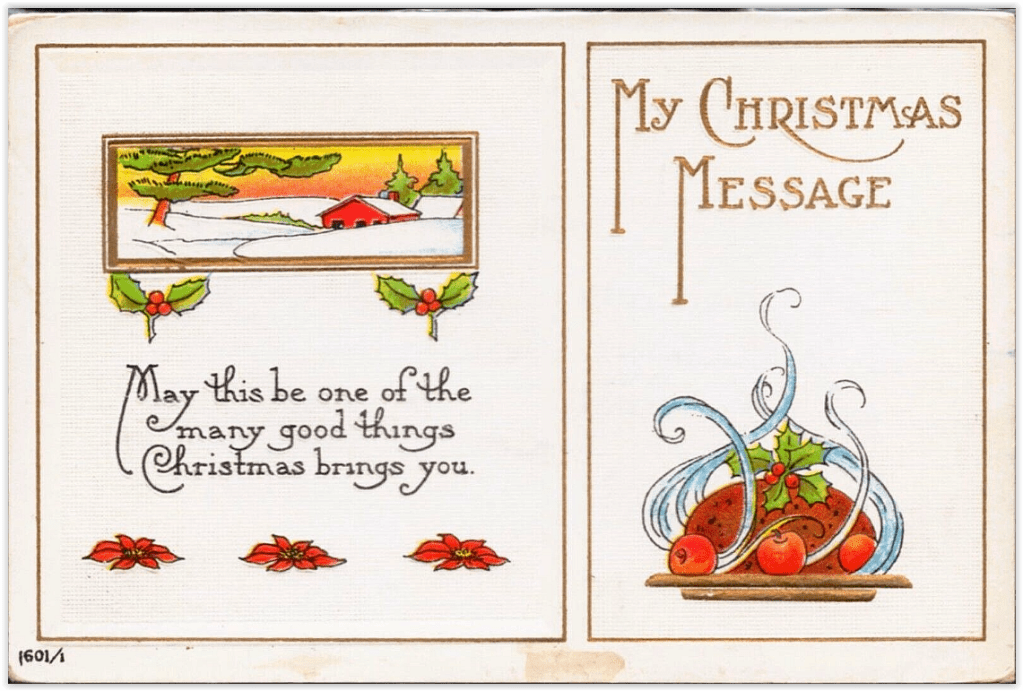 May this be one of the
many good things
Christmas brings you.
My Christmas
Message
1601/1